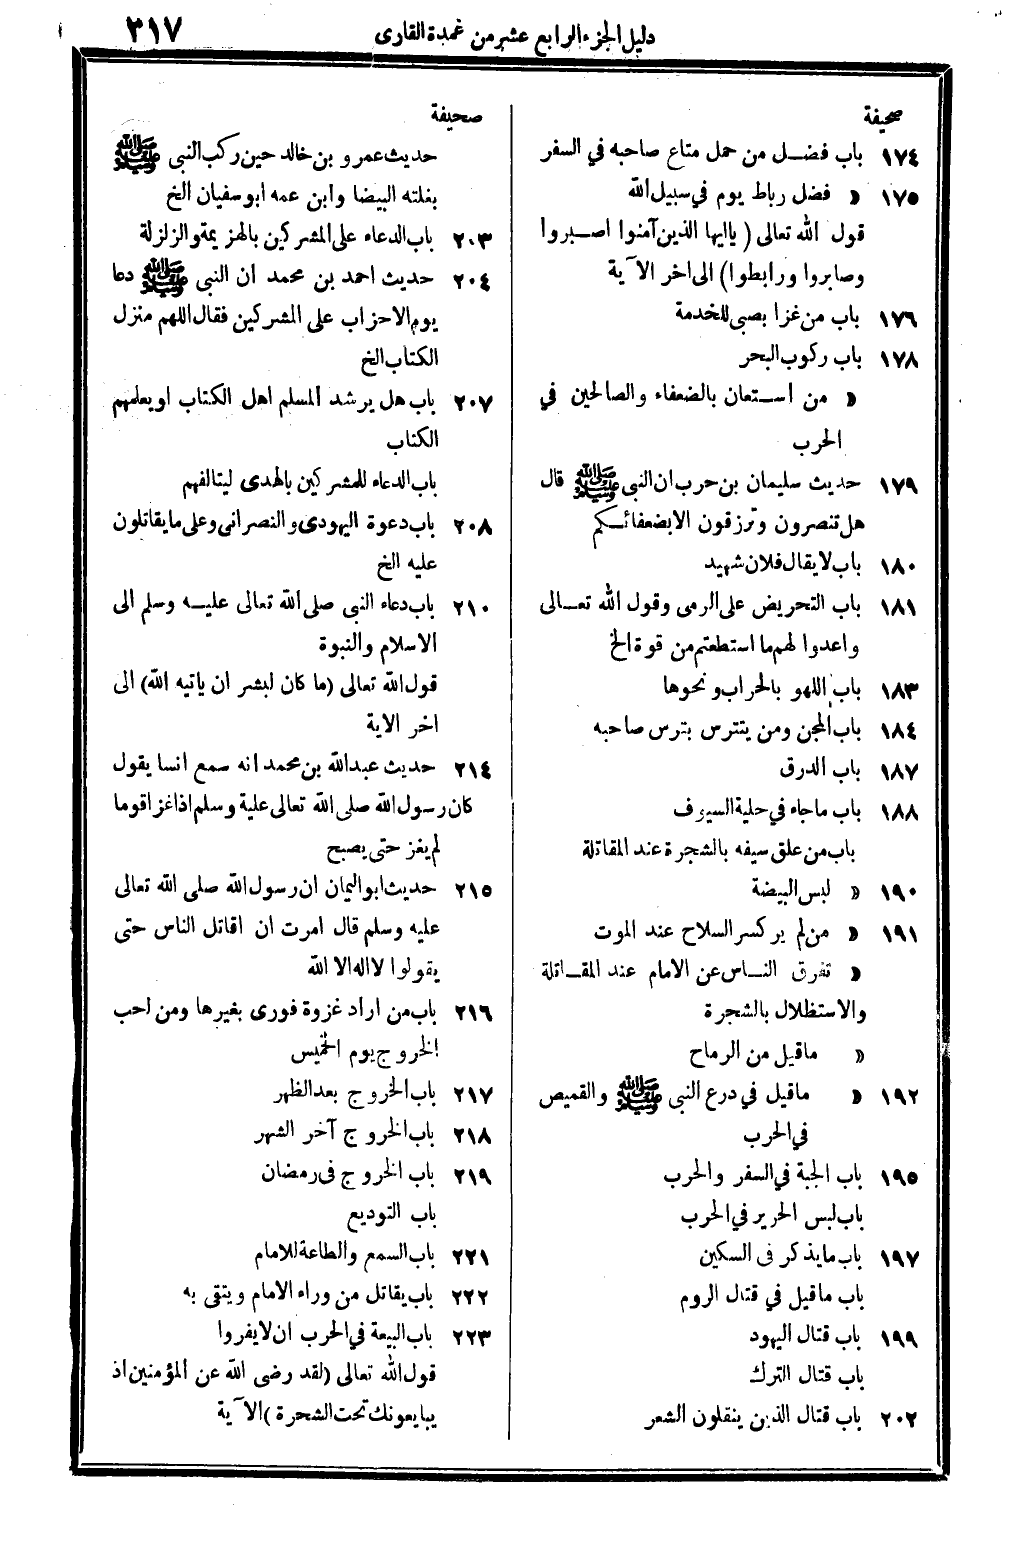 دليل الجزء الرابع عشر من عمدة القارى ٣١٧
صحيفة
١٧٤ باب فضل من حمل متاع صاحبه في السفر
١٧٥ « فضل رباط يوم في سبيل الله
قول الله تعالى ( ياايها الذين آمنوا اصبروا
وصابروا ورابطوا) الى اخر الآية
١٧٦ باب من غزا بصبى للخدمة
١٧٨ باب ركوب البحر
« من استعان بالضعفاء والصالحين في
الحرب
١٧٩ حديث سليمان بن حرب ان النبى ﷺ قال
هل تنصرون وترزقون الا بضعفائكم
١٨٠ باب لا يقال فلان شهيد
١٨١ باب التحريض على الرمى وقول الله تعالى
واعدوا لهم ما استطعتم من قوة الخ
١٨٣ باب اللهو بالحراب ونحوها
١٨٤ باب المجن ومن يتترس بترس صاحبه
١٨٧ باب الدرق
١٨٨ باب ماجاء في حلية السيوف
باب من علق سيفه بالشجرة عند المقاتلة
١٩٠ « لبس البيضة
١٩١ « من لم ير كسر السلاح عند الموت
« تفرق الناس عن الامام عند المقاتلة
والاستظلال بالشجرة
« ماقيل من الرماح
١٩٢ « ماقيل في درع النبى ﷺ والقميص
في الحرب
١٩٥ باب الجبة في السفر والحرب
باب لبس الحرير في الحرب
١٩٧ باب مايذكر فى السكين
باب ماقيل في قتال الروم
١٩٩ باب قتال اليهود
باب قتال الترك
٢٠٢ باب قتال الذين ينقلون الشعر
صحيفة
حديث عمرو بن خالد حين ركب النبى ﷺ
بغلته البيضا وابن عمه ابو سفيان الخ
٢٠٣ باب الدعاء على المشركين بالهزيمة والزلزلة
٢٠٤ حديث احمد بن محمد ان النبى ﷺ دعا
يوم الاحزاب على المشركين فقال اللهم منزل
الكتاب الخ
٢٠٧ باب هل يرشد المسلم اهل الكتاب او يعلمهم
الكتاب
باب الدعاء للمشركين بالهدى ليتالفهم
٢٠٨ باب دعوة اليهودى والنصرانى وعلى مايقاتلون
عليه الخ
٢١٠ باب دعاء النبى صلى الله تعالى عليه وسلم الى
الاسلام والنبوة
قول الله تعالى (ما كان لبشر ان ياتيه الله) الى
اخر الاية
٢١٤ حديث عبدالله بن محمد انه سمع انسا يقول
كان رسول الله صلى الله تعالى علية وسلم اذا غزا قوما
لم يغز حتى يصبح
٢١٥ حديث ابو اليمان ان رسول الله صلى الله تعالى
عليه وسلم قال امرت ان اقاتل الناس حتى
يقولوا لا اله الا الله
٢١٦ باب من اراد غزوة فورى بغيرها ومن احب
الخروج يوم الخميس
٢١٧ باب الخروج بعد الظهر
٢١٨ باب الخروج آخر الشهر
٢١٩ باب الخروج فى رمضان
باب التوديع
٢٢١ باب السمع والطاعة للامام
٢٢٢ باب يقاتل من وراء الامام ويتقى به
٢٢٣ باب البيعة في الحرب ان لا يفروا
قول الله تعالى (لقد رضى الله عن المؤمنين اذ
يبايعونك تحت الشجرة )الآية